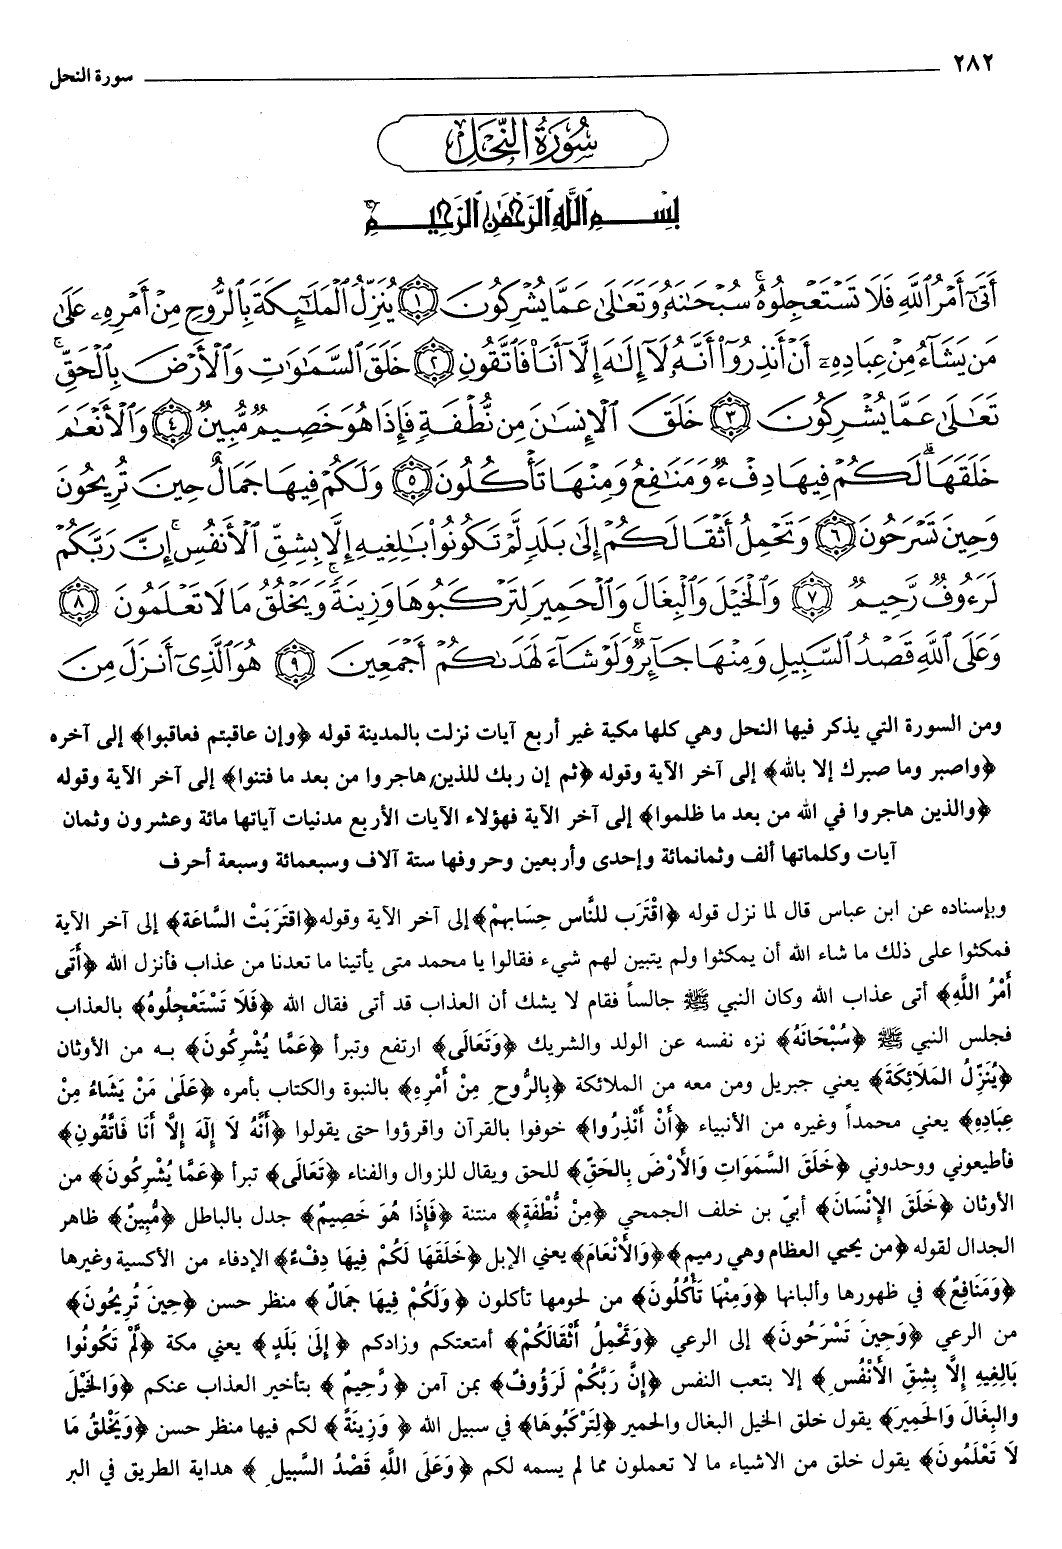 ٢٨٢ سورة النحل
سُورَةُ النَّحْلِ
بِسْمِ اللَّهِ الرَّحْمَٰنِ الرَّحِيمِ
أَتَىٰٓ أَمْرُ ٱللَّهِ فَلَا تَسْتَعْجِلُوهُ ۚ سُبْحَٰنَهُۥ وَتَعَٰلَىٰ عَمَّا يُشْرِكُونَ ١ يُنَزِّلُ ٱلْمَلَٰٓئِكَةَ بِٱلرُّوحِ مِنْ أَمْرِهِۦ عَلَىٰ
مَن يَشَآءُ مِنْ عِبَادِهِۦٓ أَنْ أَنذِرُوٓا۟ أَنَّهُۥ لَآ إِلَٰهَ إِلَّآ أَنَا۠ فَٱتَّقُونِ ٢ خَلَقَ ٱلسَّمَٰوَٰتِ وَٱلْأَرْضَ بِٱلْحَقِّ ۚ
تَعَٰلَىٰ عَمَّا يُشْرِكُونَ ٣ خَلَقَ ٱلْإِنسَٰنَ مِن نُّطْفَةٍ فَإِذَا هُوَ خَصِيمٌ مُّبِينٌ ٤ وَٱلْأَنْعَٰمَ
خَلَقَهَا ۗ لَكُمْ فِيهَا دِفْءٌ وَمَنَٰفِعُ وَمِنْهَا تَأْكُلُونَ ٥ وَلَكُمْ فِيهَا جَمَالٌ حِينَ تُرِيحُونَ
وَحِينَ تَسْرَحُونَ ٦ وَتَحْمِلُ أَثْقَالَكُمْ إِلَىٰ بَلَدٍ لَّمْ تَكُونُوا۟ بَٰلِغِيهِ إِلَّا بِشِقِّ ٱلْأَنفُسِ ۚ إِنَّ رَبَّكُمْ
لَرَءُوفٌ رَّحِيمٌ ٧ وَٱلْخَيْلَ وَٱلْبِغَالَ وَٱلْحَمِيرَ لِتَرْكَبُوهَا وَزِينَةً ۚ وَيَخْلُقُ مَا لَا تَعْلَمُونَ ٨
وَعَلَى ٱللَّهِ قَصْدُ ٱلسَّبِيلِ وَمِنْهَا جَآئِرٌ ۚ وَلَوْ شَآءَ لَهَدَىٰكُمْ أَجْمَعِينَ ٩ هُوَ ٱلَّذِىٓ أَنزَلَ مِنَ
ومن السورة التي يذكر فيها النحل وهي كلها مكية غير أربع آيات نزلت بالمدينة قوله ﴿وإن عاقبتم فعاقبوا﴾ إلى آخره
﴿واصبر وما صبرك إلا بالله﴾ إلى آخر الآية وقوله ﴿ثم إن ربك للذين هاجروا من بعد ما فتنوا﴾ إلى آخر الآية وقوله
﴿والذين هاجروا في الله من بعد ما ظلموا﴾ إلى آخر الآية فهؤلاء الآيات الأربع مدنيات آياتها مائة وعشرون وثمان
آيات وكلماتها ألف وثمانمائة وإحدى وأربعين وحروفها ستة آلاف وسبعمائة وسبعة أحرف
وبإسناده عن ابن عباس قال لما نزل قوله ﴿اقْتَرَب للنَّاس حِسَابهمْ﴾ إلى آخر الآية وقوله ﴿اقتَرَبَتْ السَّاعَة﴾ إلى آخر الآية
فمكثوا على ذلك ما شاء الله أن يمكثوا ولم يتبين لهم شيء فقالوا يا محمد متى يأتينا ما تعدنا من عذاب فأنزل الله ﴿أَتَى
أَمْرُ اللَّهِ﴾ أتى عذاب الله وكان النبي ﷺ جالساً فقام لا يشك أن العذاب قد أتى فقال الله ﴿فَلَا تَسْتَعْجِلُوهُ﴾ بالعذاب
فجلس النبي ﷺ ﴿سُبْحَانَهُ﴾ نزه نفسه عن الولد والشريك ﴿وَتَعَالَى﴾ ارتفع وتبرأ ﴿عَمَّا يُشْرِكُونَ﴾ به من الأوثان
﴿يُنَزِّلُ المَلَائِكَةَ﴾ يعني جبريل ومن معه من الملائكة ﴿بِالرُّوحِ مِنْ أَمْرِهِ﴾ بالنبوة والكتاب بأمره ﴿عَلَىٰ مَنْ يَشَاءُ مِنْ
عِبَادِهِ﴾ يعني محمداً وغيره من الأنبياء ﴿أَنْ أَنْذِرُوا﴾ خوفوا بالقرآن واقرؤوا حتى يقولوا ﴿أَنَّهُ لَا إِلَهَ إِلَّا أَنَا فَاتَّقُونِ﴾
فأطيعوني ووحدوني ﴿خَلَقَ السَّمَوَاتِ وَالأَرْضَ بِالحَقِّ﴾ للحق ويقال للزوال والفناء ﴿تَعَالَى﴾ تبرأ ﴿عَمَّا يُشْرِكُونَ﴾ من
الأوثان ﴿خَلَقَ الإِنْسَانَ﴾ أبيّ بن خلف الجمحي ﴿مِنْ نُطْفَةٍ﴾ منتنة ﴿فَإِذَا هُوَ خَصِيمٌ﴾ جدل بالباطل ﴿مُبِينٌ﴾ ظاهر
الجدال لقوله ﴿من يحيي العظام وهي رميم﴾ ﴿وَالأَنْعَامَ﴾ يعني الإبل ﴿خَلَقَهَا لَكُمْ فِيهَا دِفْءٌ﴾ الإدفاء من الأكسية وغيرها
﴿وَمَنَافِعُ﴾ في ظهورها وألبانها ﴿وَمِنْهَا تَأْكُلُونَ﴾ من لحومها تأكلون ﴿وَلَكُمْ فِيهَا جَمَالٌ﴾ منظر حسن ﴿حِينَ تُرِيحُونَ﴾
من الرعي ﴿وَحِينَ تَسْرَحُونَ﴾ إلى الرعي ﴿وَتَحْمِلُ أَثْقَالَكُمْ﴾ أمتعتكم وزادكم ﴿إِلَىٰ بَلَدٍ﴾ يعني مكة ﴿لَمْ تَكُونُوا
بَالِغِيهِ إِلَّا بِشِقِّ الأَنْفُسِ﴾ إلا بتعب النفس ﴿إِنَّ رَبَّكُمْ لَرَؤُوفٌ﴾ بمن آمن ﴿رَحِيمٌ﴾ بتأخير العذاب عنكم ﴿وَالخَيْلَ
والبِغَالَ وَالحَمِيرَ﴾ يقول خلق الخيل البغال والحمير ﴿لِتَرْكَبُوهَا﴾ في سبيل الله ﴿وَزِينَةً﴾ لكم فيها منظر حسن ﴿وَيَخْلُقُ مَا
لَا تَعْلَمُونَ﴾ يقول خلق من الاشياء ما لا تعملون مما لم يسمه لكم ﴿وَعَلَى اللَّهِ قَصْدُ السَّبِيلِ﴾ هداية الطريق في البر